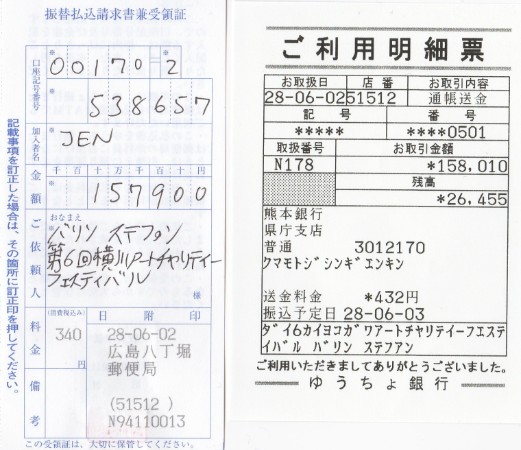 振替払込請求書兼受領証
口座記号番号
00170 2
538657
加入者名
JEN
金額
千 百 十 万 千 百 十 円
157900
ご依頼人
おなまえ
バリン ステファン
第6回横川アートチャリティー
フェスティバル
様
(消費税込み)
料金
340
円
日 附 印
28-06-02
広島八丁堀
郵便局
(51512 )
N94110013
備考
この受領証は、大切に保管してください。
記載事項を訂正した場合は、その箇所に訂正印を押してください。
ご利用明細票
お取扱日 店番 お取引内容
28-06-02 51512 通帳送金
記号 番号
***** ****0501
取扱番号 お取引金額
N178 *158,010
残高
*26,455
熊本銀行
県庁支店
普通 3012170
クマモトジシンギエンキン
送金料金 *432円
振込予定日 28-06-03
ダイ6カイヨコガワアートチヤリテイーフエステ
イバル バリン ステフアン
ご利用いただきましてありがとうございました。
ゆうちょ銀行